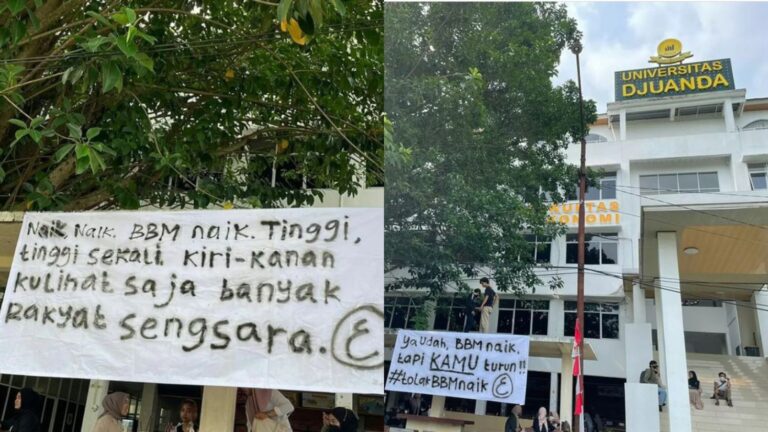 Naik Naik. BBM naik. Tinggi,
tinggi sekali. kiri-kanan
kulihat saja banyak
Rakyat sengsara.
UNIVERSITAS
DJUANDA
ya Udah, BBM naik.
tapi KAMU turun!!
#tolakBBMnaik